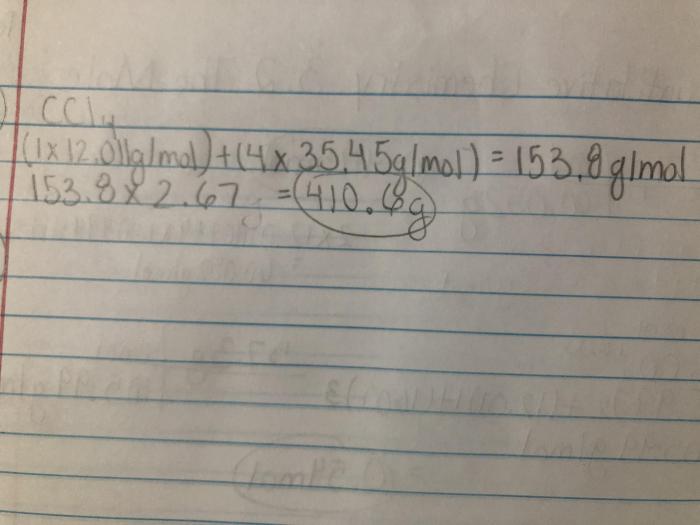 CCl4
(1x12.011g/mol)+(4x35.45g/mol)=153.8g/mol
153.8x2.67 =410.6g